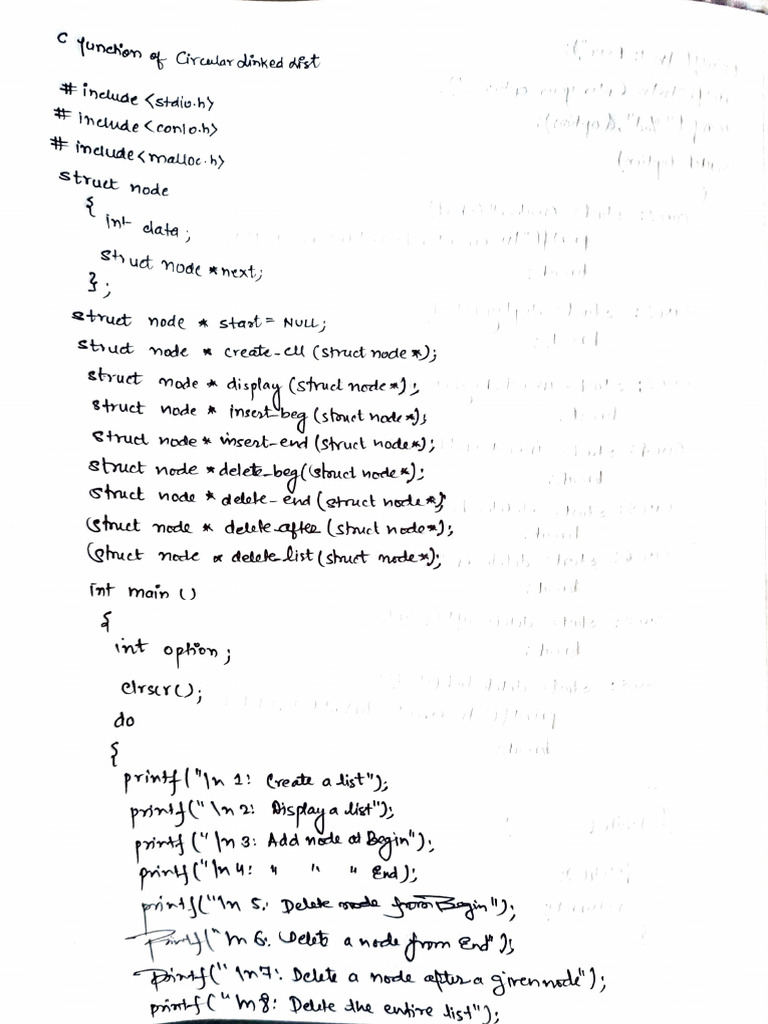 C function of Circular Linked List
# include <stdio.h>
# include <conio.h>
# include <malloc.h>
struct node
{
int data;
struct node *next;
};
struct node * start = NULL;
struct node * create-cll (struct node *);
struct node * display (struct node *);
struct node * insert-beg (struct node *);
struct node * insert-end (struct node *);
struct node * delete-beg((struct node *);
struct node * delete-end (struct node *)
(struct node * delete-after (struct node *);
(struct node * delete list (struct node *);
int main ()
{
int option;
clrscr();
do
{
printf("\n 1: Create a list");
printf("\n 2: Display a list");
printf("\n 3: Add node at Begin");
printf("\n 4: " " " End);
printf("\n 5: Delete node from Begin");
printf("\n 6: Delete a node from End");
printf("\n 7: Delete a node after a given node");
printf("\n 8: Delete the entire list");